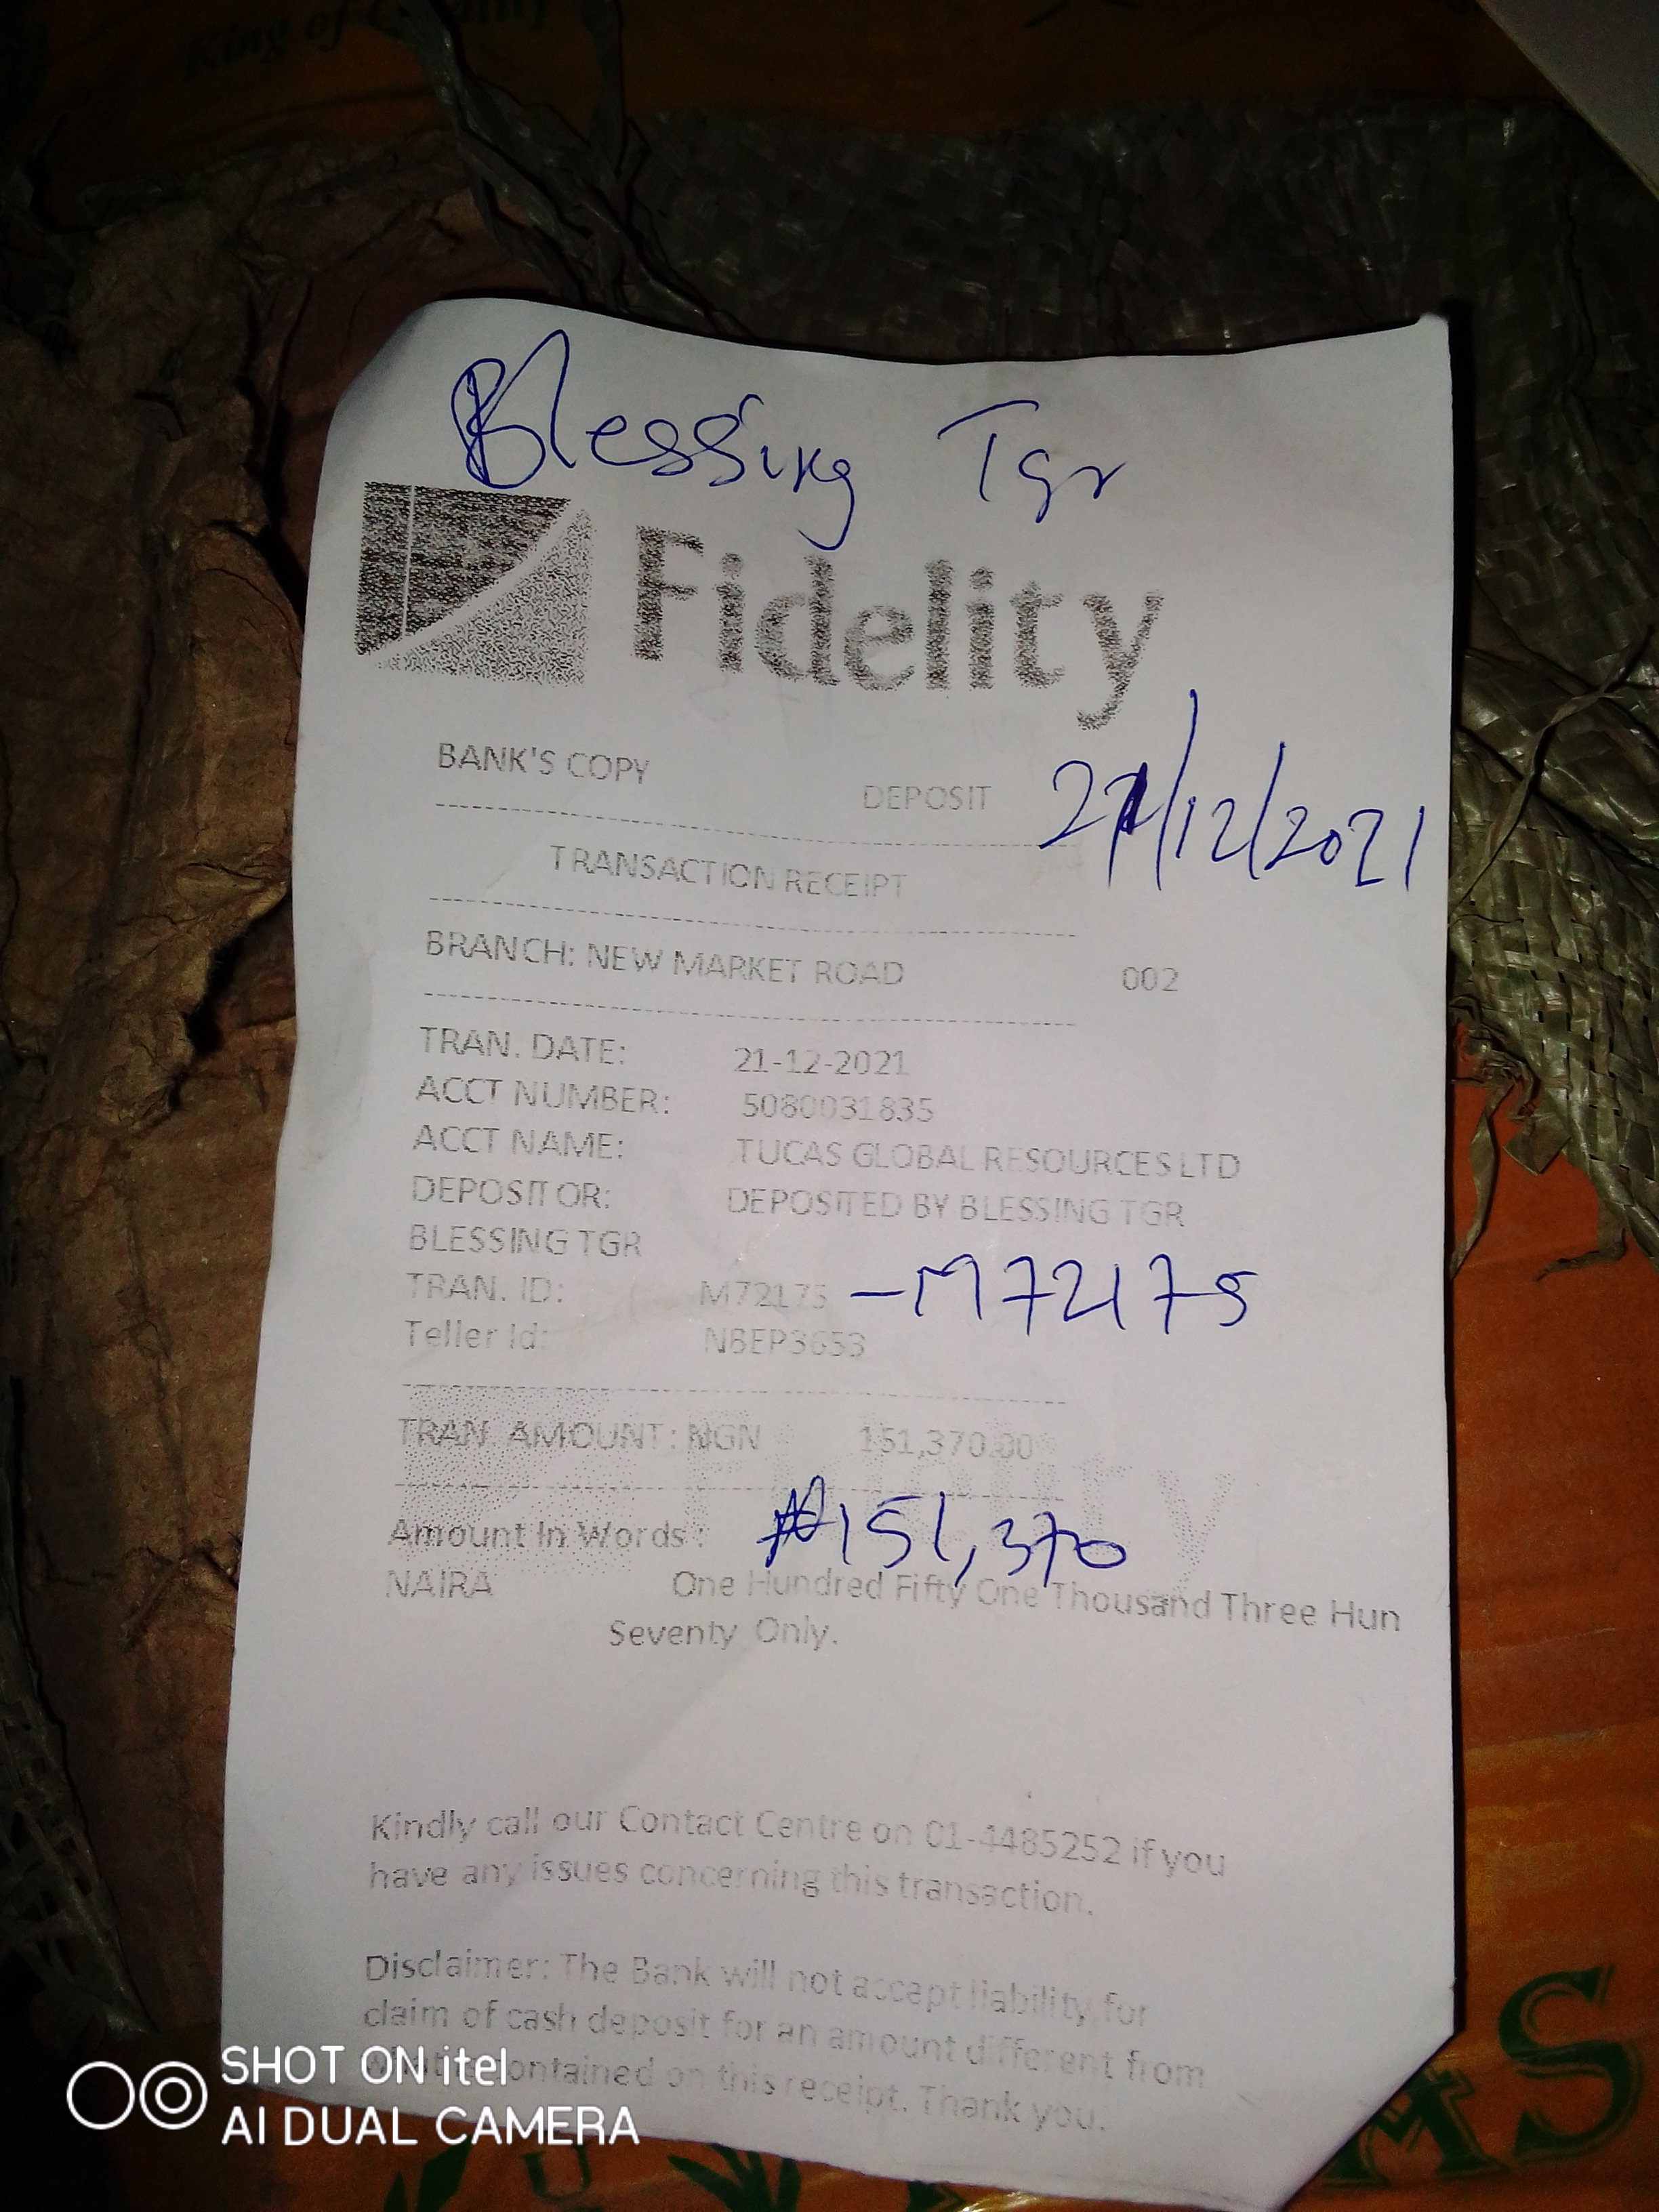 King of Quality
Blessing Tgr
Fidelity
BANK'S COPY
DEPOSIT 21/12/2021
TRANSACTION RECEIPT
BRANCH: NEW MARKET ROAD 002
TRAN. DATE: 21-12-2021
ACCT NUMBER: 5080031835
ACCT NAME: TUCAS GLOBAL RESOURCES LTD
DEPOSITOR: DEPOSITED BY BLESSING TGR
BLESSING TGR
TRAN. ID: M72175 - M72175
Teller Id: NBEP3653
TRAN. AMOUNT: NGN 151,370.00
Amount In Words: ₦151,370
NAIRA One Hundred Fifty One Thousand Three Hun
Seventy Only.
Kindly call our Contact Centre on 01-4485252 if you
have any issues concerning this transaction.
Disclaimer: The Bank will not accept liability for
claim of cash deposit for an amount different from
contained on this receipt. Thank you.
SHOT ON itel
AI DUAL CAMERA